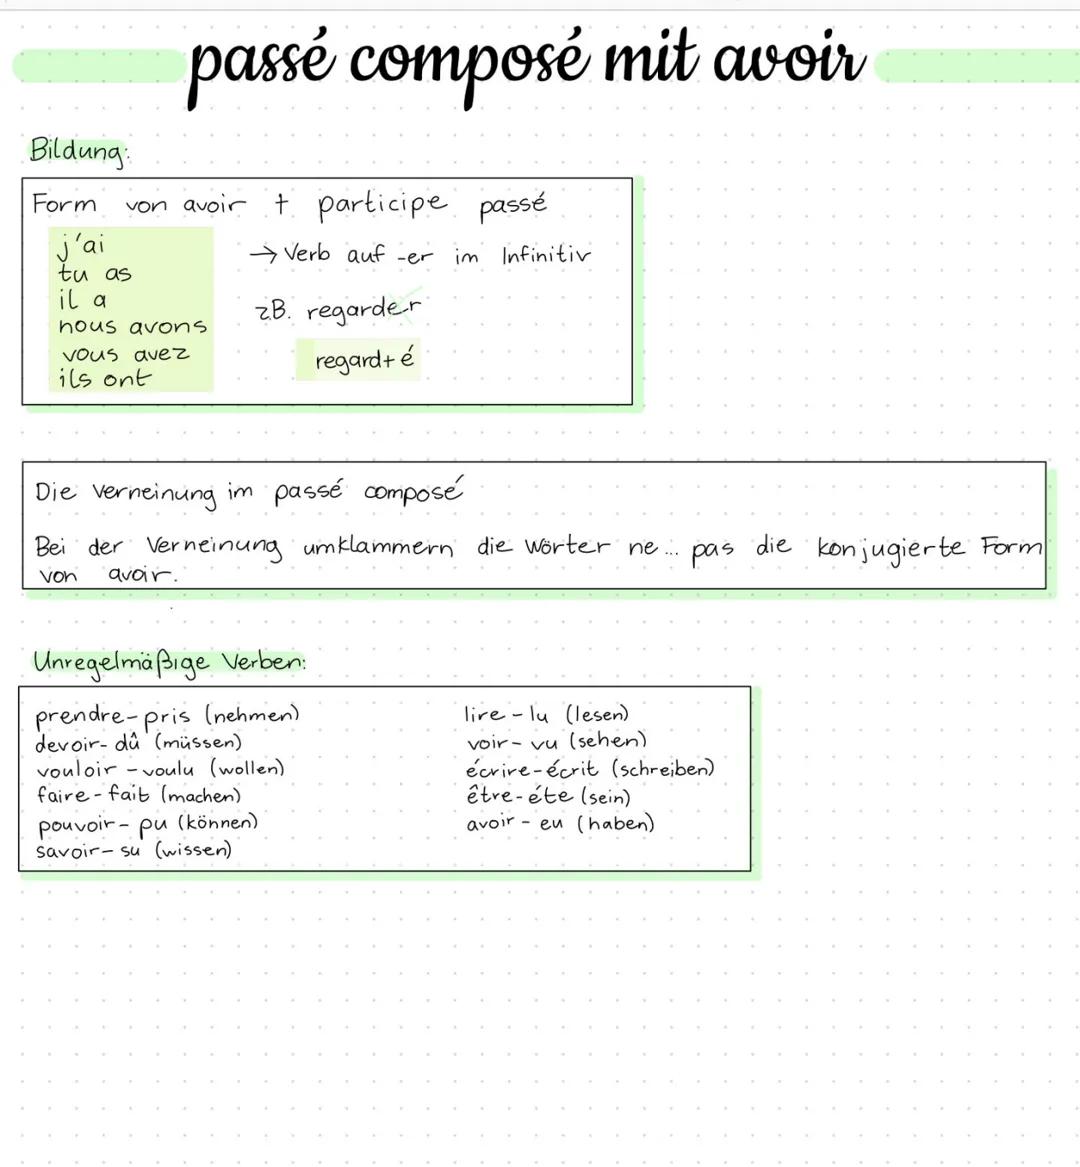 passé composé mit avoir
Bildung:
Form von avoir + participe passé
j'ai
tu as
il a
nous avons
vous avez
ils ont
→ Verb auf -er im Infinitiv
zB. regarder
regard+é
Die Verneinung im passé composé
Bei der Verneinung umklammern die Wörter ne... pas die konjugierte Form
von avoir.
Unregelmäßige Verben:
prendre - pris (nehmen)
devoir - dû (müssen)
vouloir - voulu (wollen)
faire - fait (machen)
pouvoir - pu (können)
savoir - su (wissen)
lire - lu (lesen)
voir - vu (sehen)
écrire - écrit (schreiben)
être - éte (sein)
avoir - eu (haben)